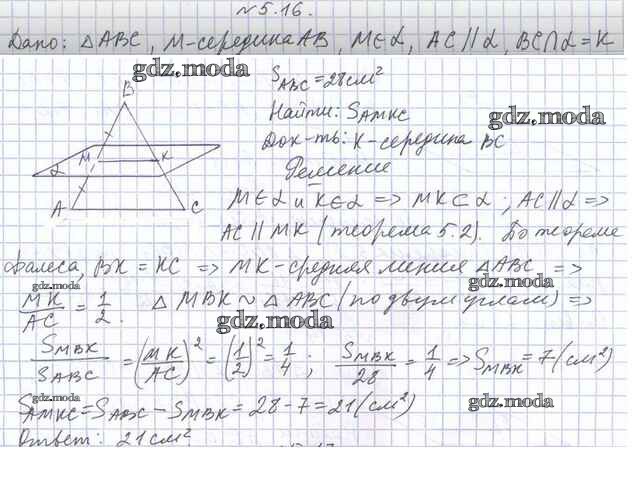 №5.16.
Дано: △ABC, M-середина AB, M∈α, AC∥α, BC∩α=K
gdz.moda
S_ABC=28см²
Найти: S_AMKC
gdz.moda
Док-ть: K-середина BC
Решение
B
M K
α
A C
M∈α и K∈α => MK⊂α; AC∥α =>
AC∥MK (теорема 5.2). По теореме
Фалеса, BK=KC => MK-средняя линия △ABC =>
gdz.moda
gdz.moda
MK/AC = 1/2. △MBK ~ △ABC (по двум углам) =>
gdz.moda
S_MBK/S_ABC = (MK/AC)² = (1/2)² = 1/4; S_MBK/28 = 1/4 => S_MBK = 7 (см²)
S_AMKC = S_ABC - S_MBK = 28 - 7 = 21 (см²)
gdz.moda
gdz.moda
Ответ: 21 см²